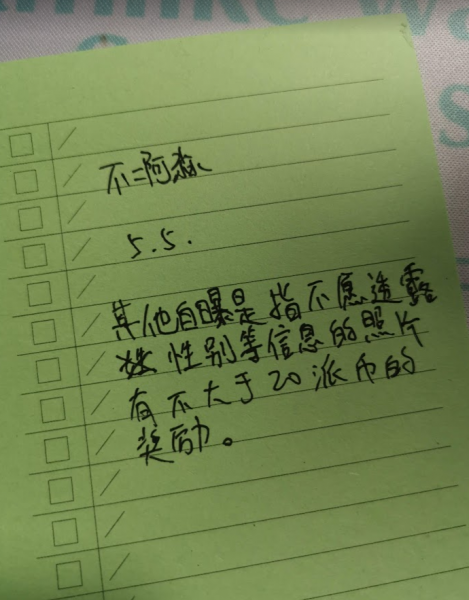 不二阿森
5.5.
其他自曝是指不愿透露
性别等信息的照片
有不大于20派币的
奖励。